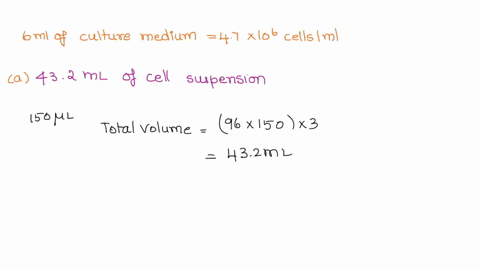 6ml of culture medium = 4.7 × 10⁶ cells/ml
(a) 43.2 mL of cell suspension
150 μL
Total Volume = (96 × 150) × 3
= 43.2 mL